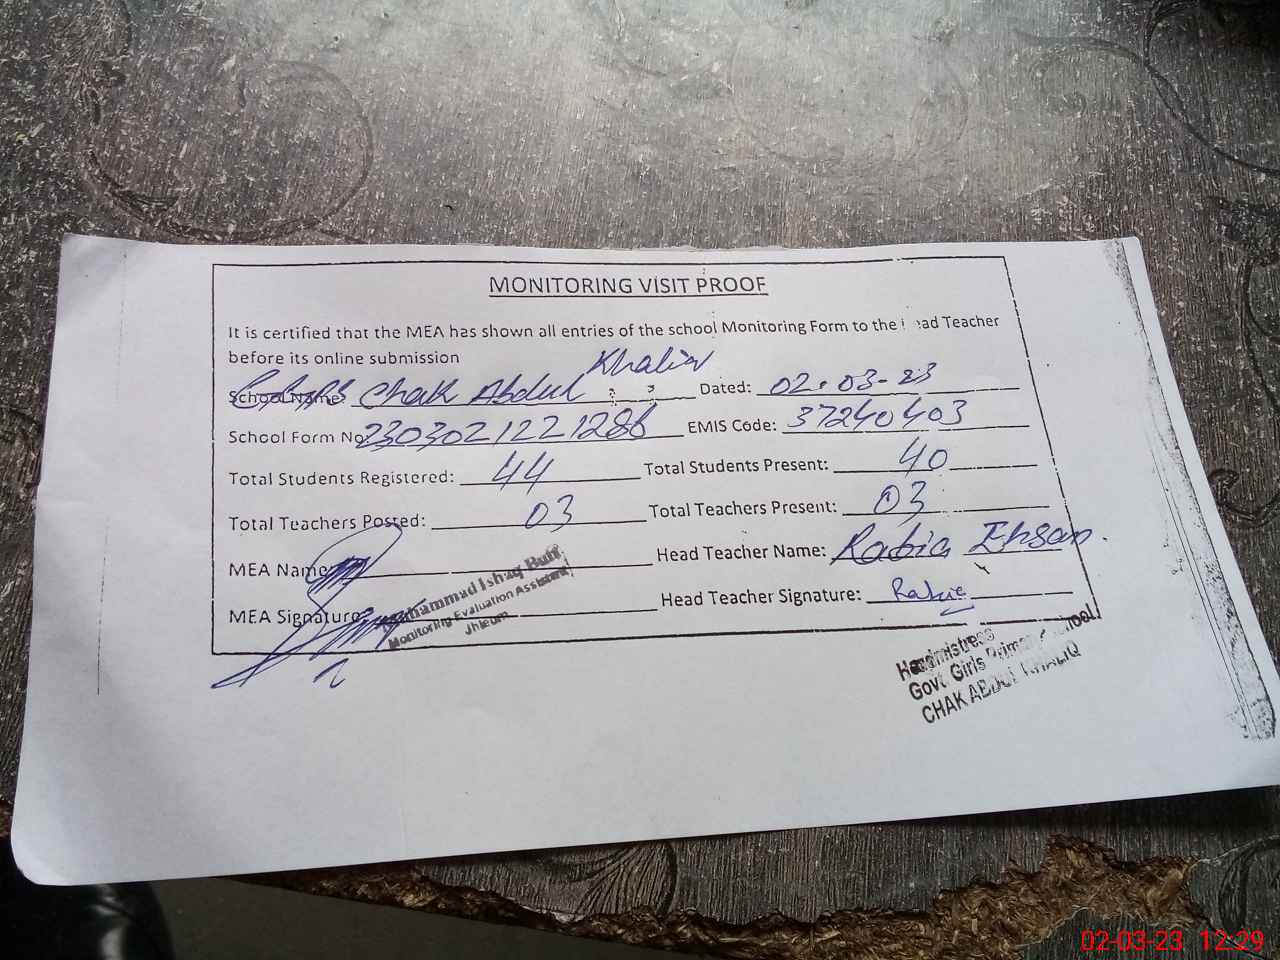 MONITORING VISIT PROOF
It is certified that the MEA has shown all entries of the school Monitoring Form to the Head Teacher
before its online submission
School Name: GGPS Chak Abdul Khaliq Dated: 02-03-23
School Form No 2303021221286 EMIS Code: 37240403
Total Students Registered: 44 Total Students Present: 40
Total Teachers Posted: 03 Total Teachers Present: 03
MEA Name: Head Teacher Name: Rabia Ehsan.
MEA Signature: Head Teacher Signature: Rabia
Muhammad Ishaq Butt
Monitoring Evaluation Assistant
Jhleum
Headmistress
Govt Girls Primary School
CHAK ABDUL KHALIQ
02-03-23 12:29